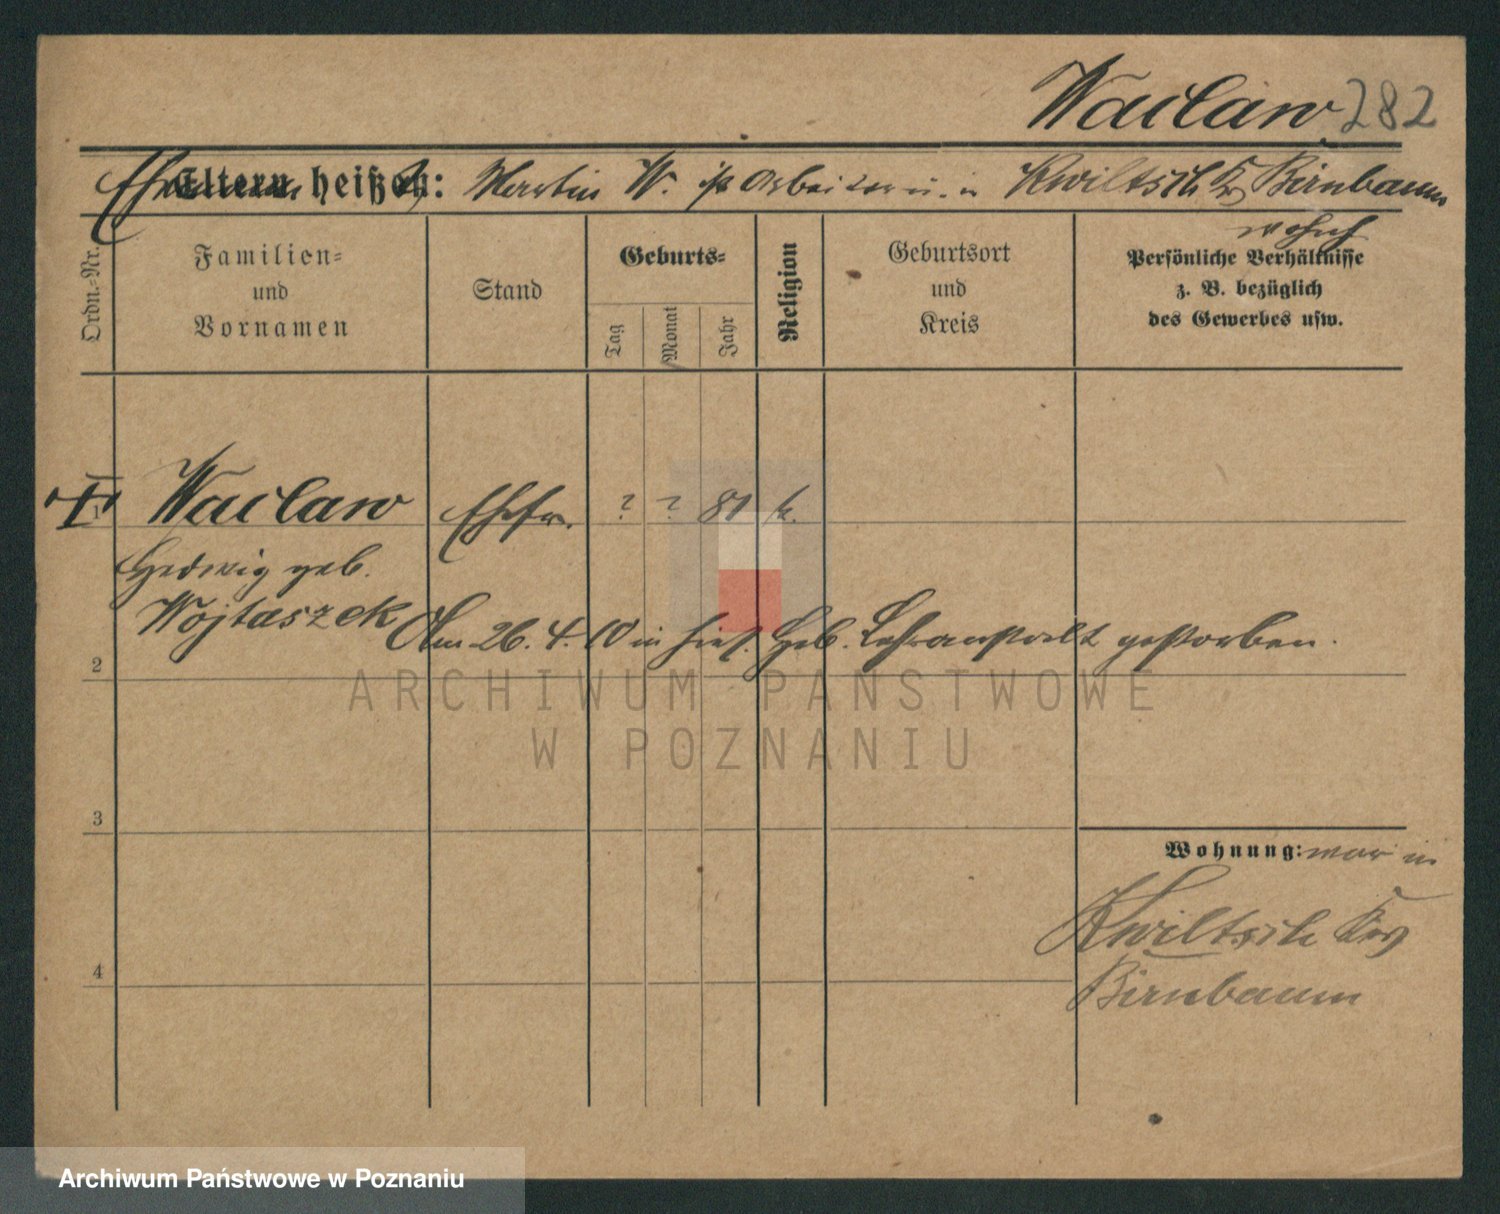 Waclaw 282
Ehemann heißt: Martin W. ist Arbeiter u. in Kwiltsch Kr. Birnbaum
wohnh
Ordn.-Nr.
Familien-
und
Vornamen
Stand
Geburts-
Tag
Monat
Jahr
Religion
Geburtsort
und
Kreis
Persönliche Verhältnisse
z. B. bezüglich
des Gewerbes usw.
1 Waclaw Ehefr. ? ? 81 k.
Hedwig geb.
Wojtaszek Am 26. 4. 10 in hies. Heb. Lehranstalt gestorben.
2
3
Wohnung: war in
Kwiltsch Krs
Birnbaum
4
ARCHIWUM PAŃSTWOWE
W POZNANIU
Archiwum Państwowe w Poznaniu